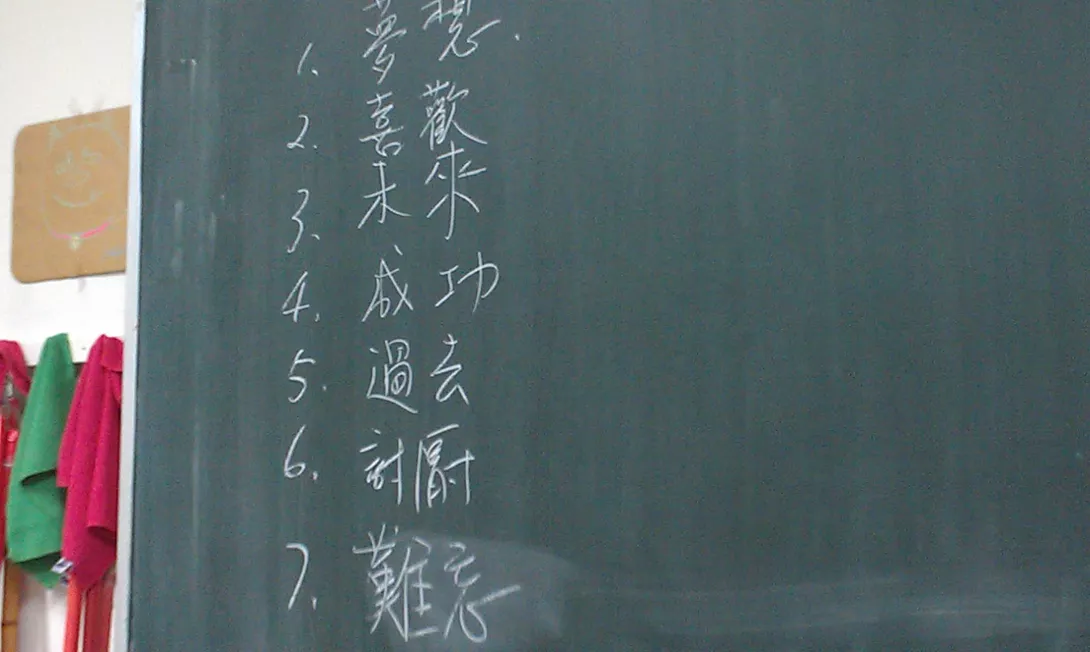 1. 夢想.
2. 喜歡
3. 未來
4. 成功
5. 過去
6. 討厭
7. 難忘